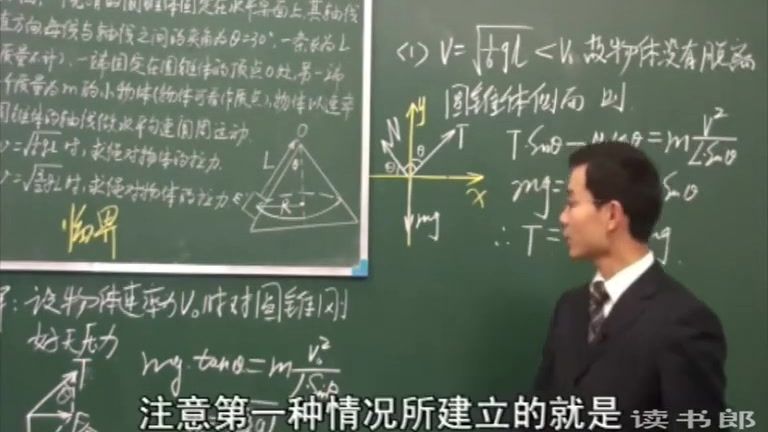 一个光滑的圆锥体固定在水平桌面上,其轴线
直方向,母线与轴线之间的夹角为θ=30°,一条长为L
质量不计),一端固定在圆锥体的顶点O处,另一端
质量为m的小物体(物体可看作质点),物体以速率
圆锥体的轴线做水平匀速圆周运动.
时,求绳对物体的拉力.
时,求绳对物体的拉力
临界
O
L
θ
R
(1) V=√(1/6 gL) < V₀ 故物体没有脱离
圆锥体侧面 则
y
N
T
θ
θ
x
mg
T Sinθ - N cosθ = m V²/LSinθ
mg=
Sinθ
∴ T=
mg
解:设物体速率为V₀时对圆锥刚
好无压力
mg·tanθ=m V₀²/LSinθ
T
θ
注意第一种情况所建立的就是
读书郎